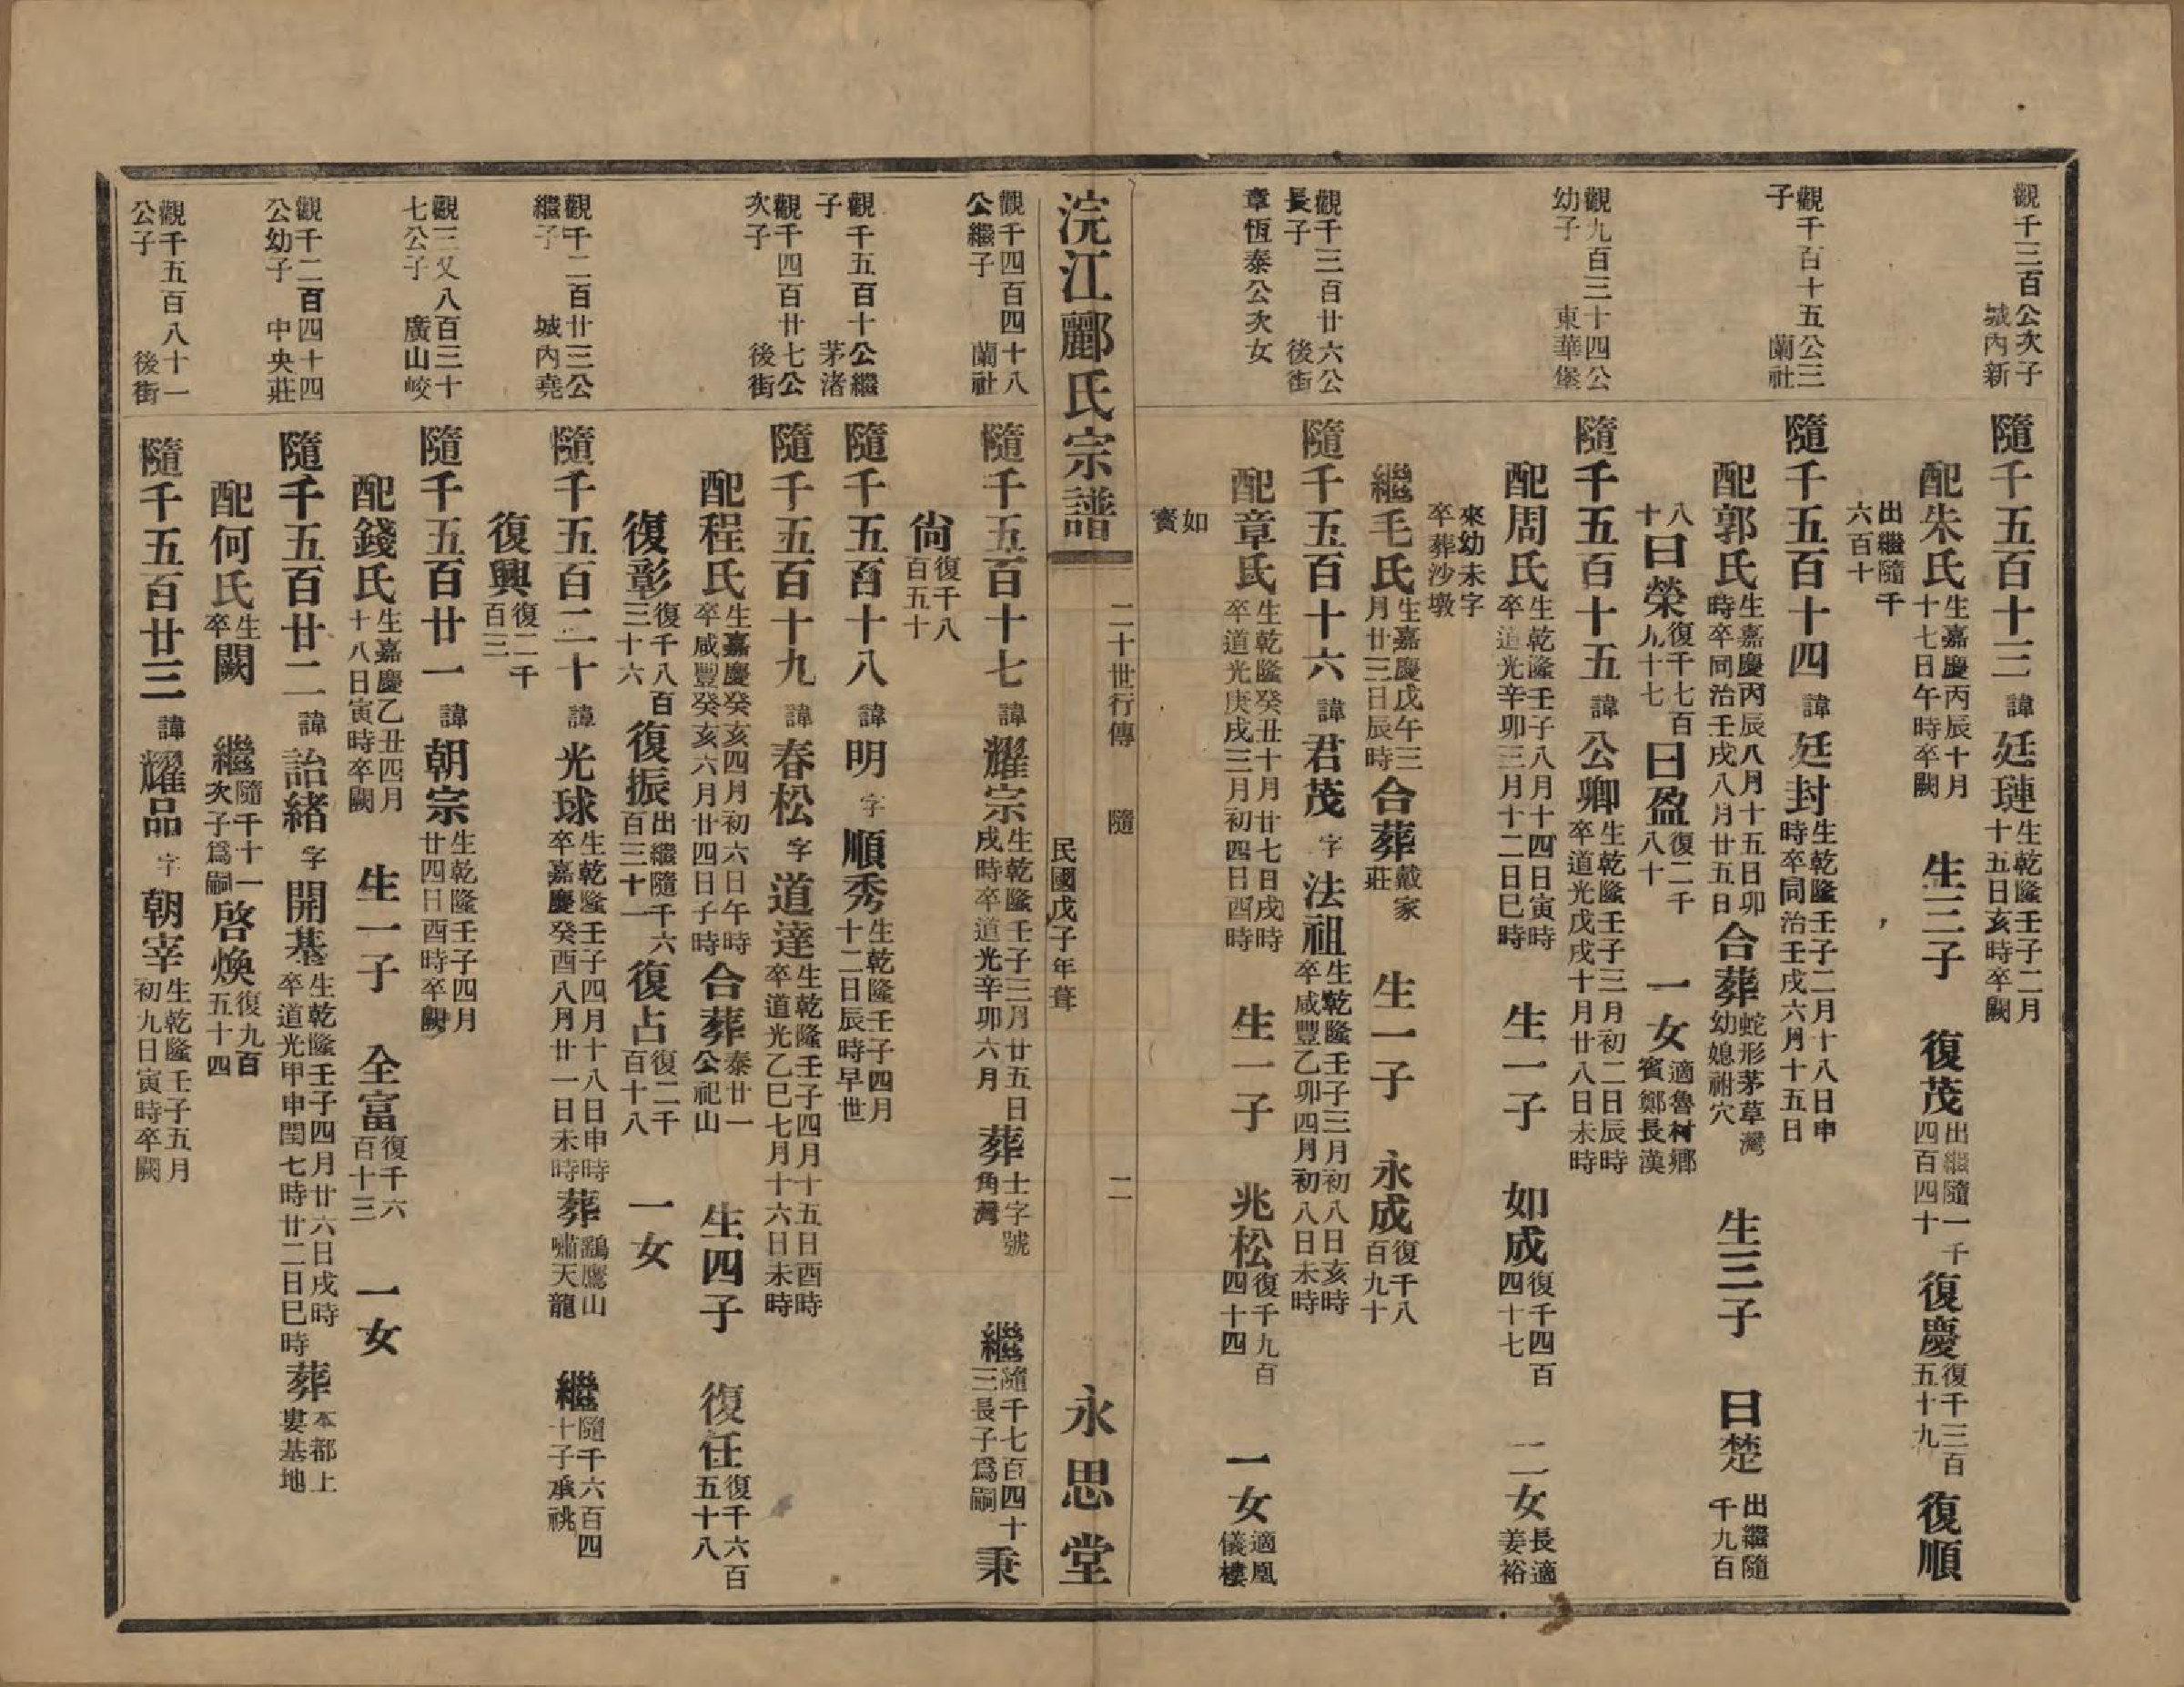 觀千三百公次子
城內新
隨千五百十三 諱 廷璉 生乾隆壬子二月十五日亥時卒闕
配朱氏 生嘉慶丙辰十月十七日午時卒闕 生三子 復茂 出繼隨一千四百四十 復慶 復千三百五十九 復順
出繼隨千六百十
觀千百十五公三子
蘭社
隨千五百十四 諱 廷封 生乾隆壬子二月十八日申時卒同治壬戌六月十五日
配郭氏 生嘉慶丙辰八月十五日卯時卒同治壬戌八月廿五日 合葬 蛇形茅草灣幼媳祔穴 生三子 曰楚 出繼隨千九百
八十 曰榮 復千七百九十七 曰盈 復二千八十 一女 適魯村鄉賓鄭長漢
觀九百三十四公幼子
東華堡
隨千五百十五 諱 公卿 生乾隆壬子三月初二日辰時卒道光戊戌十月廿八日未時
配周氏 生乾隆壬子八月十四日寅時卒道光辛卯三月十二日巳時 生一子 如成 復千四百四十七 二女 長適姜裕
來幼未字卒葬沙墩
繼毛氏 生嘉慶戊午三月廿三日辰時 合葬 戴家莊 生一子 永成 復千八百九十
觀千三百廿六公長子
後街
隨千五百十六 諱 君茂 字 法祖 生乾隆壬子三月初八日亥時卒咸豐乙卯四月初八日未時
章恆泰公次女
配章氏 生乾隆癸丑十月廿七日戌時卒道光庚戌三月初四日酉時 生一子 兆松 復千九百四十四 一女 適凰儀樓
如賓
浣江酈氏宗譜
二十世行傳 隨 二
民國戊子年葺
永思堂
觀千四百四十八公繼子
蘭社
隨千五百十七 諱 耀宗 生乾隆壬子三月廿五日戌時卒道光辛卯六月 葬 士字號角灣 繼 隨千七百四十三長子爲嗣 秉
尙 復千八百五十
觀千五百十公繼子
茅渚
隨千五百十八 諱 明 字 順秀 生乾隆壬子四月十二日辰時早世
觀千四百廿七公次子
後街
隨千五百十九 諱 春松 字 道達 生乾隆壬子四月十五日酉時卒道光乙巳七月十六日未時
配程氏 生嘉慶癸亥四月初六日午時卒咸豐癸亥六月廿四日子時 合葬 泰廿一公祀山 生四子 復任 復千六百五十八
復彰 復千八百三十六 復振 出繼隨千六百三十一 復占 復二千百十八 一女
觀千二百廿三公繼子
城內堯
隨千五百二十 諱 光球 生乾隆壬子四月十八日申時卒嘉慶癸酉八月廿一日未時 葬 鷂鷹山嘯天龍 繼 隨千六百四十子承祧
復興 復二千百三
觀三又八百三十七公子
廣山峧
隨千五百廿一 諱 朝宗 生乾隆壬子四月廿四日酉時卒闕
配錢氏 生嘉慶乙丑四月十八日寅時卒闕 生一子 全富 復千六百十三 一女
觀千二百四十四公幼子
中央莊
隨千五百廿二 諱 詒緒 字 開基 生乾隆壬子四月廿六日戌時卒道光甲申閏七時廿二日巳時 葬 本都上婁基地
配何氏 生卒闕 繼 隨千十一次子爲嗣 啓煥 復九百五十四
觀千五百八十一公子
後街
隨千五百廿三 諱 耀品 字 朝宰 生乾隆壬子五月初九日寅時卒闕